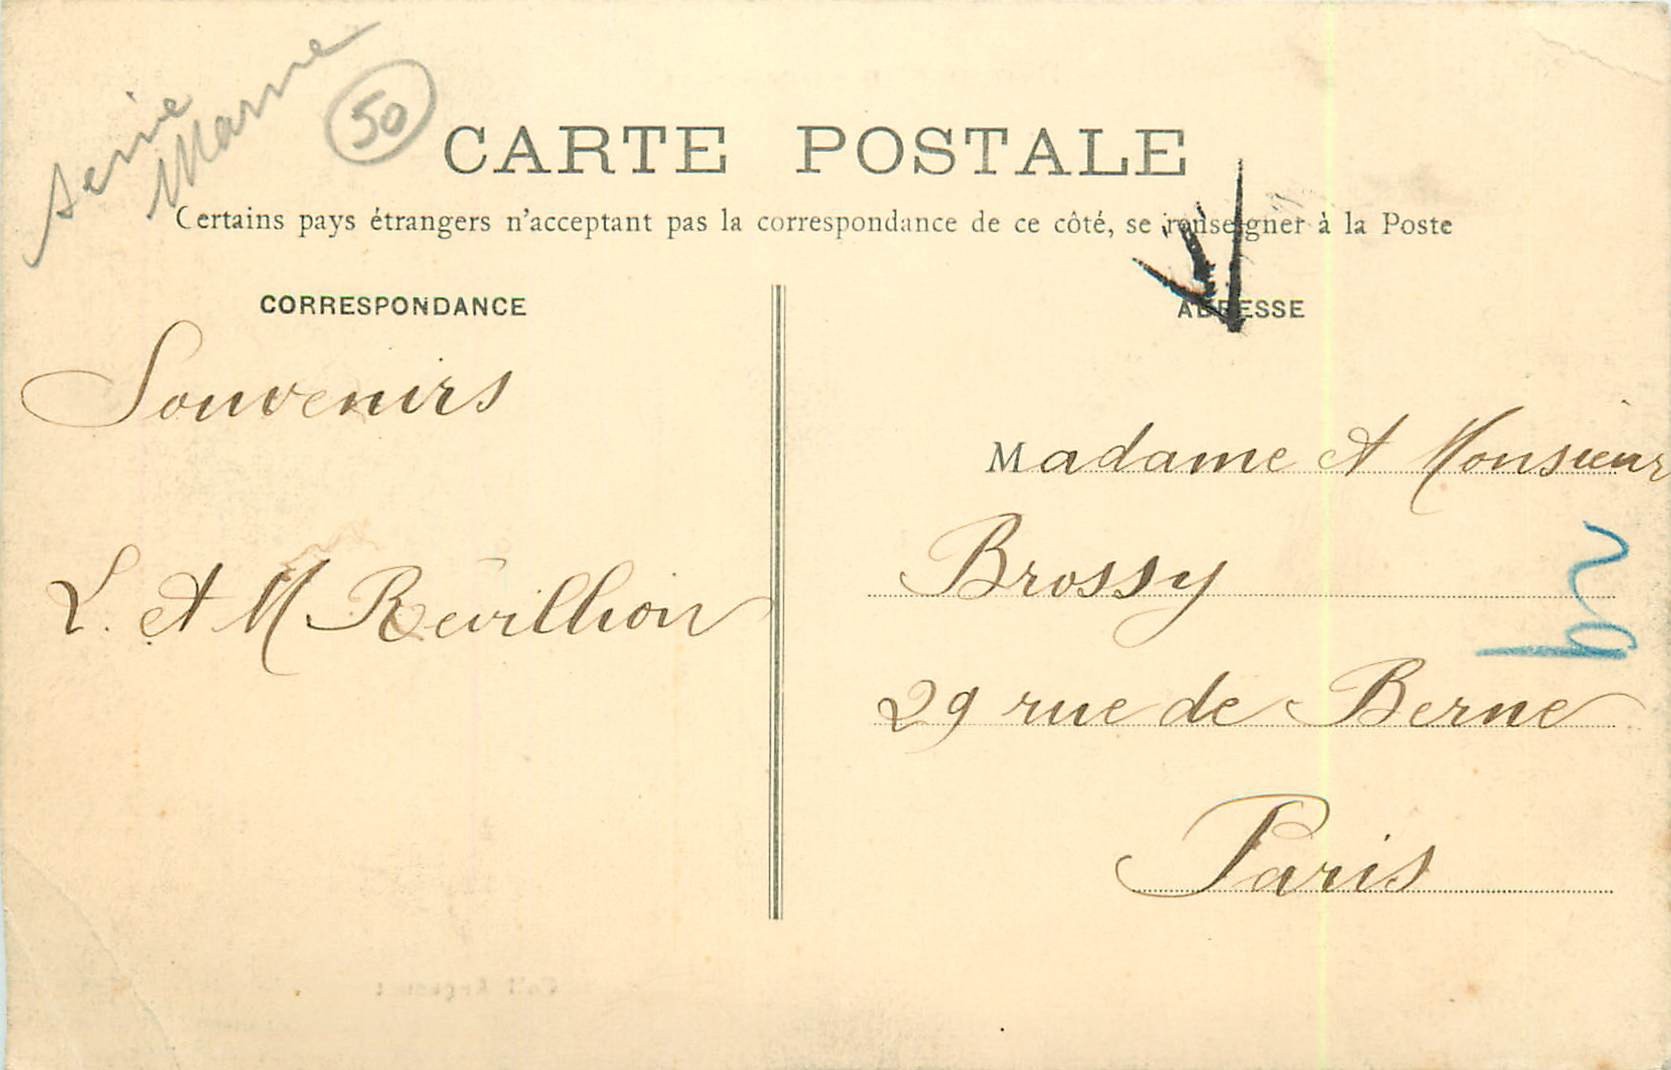 Seine
Marne
50
CARTE POSTALE
Certains pays étrangers n'acceptant pas la correspondance de ce côté, se renseigner à la Poste
CORRESPONDANCE
ADRESSE
Souvenirs
L. et M Révillion
Madame et Monsieur
Brossy
29 rue de Berne
Paris